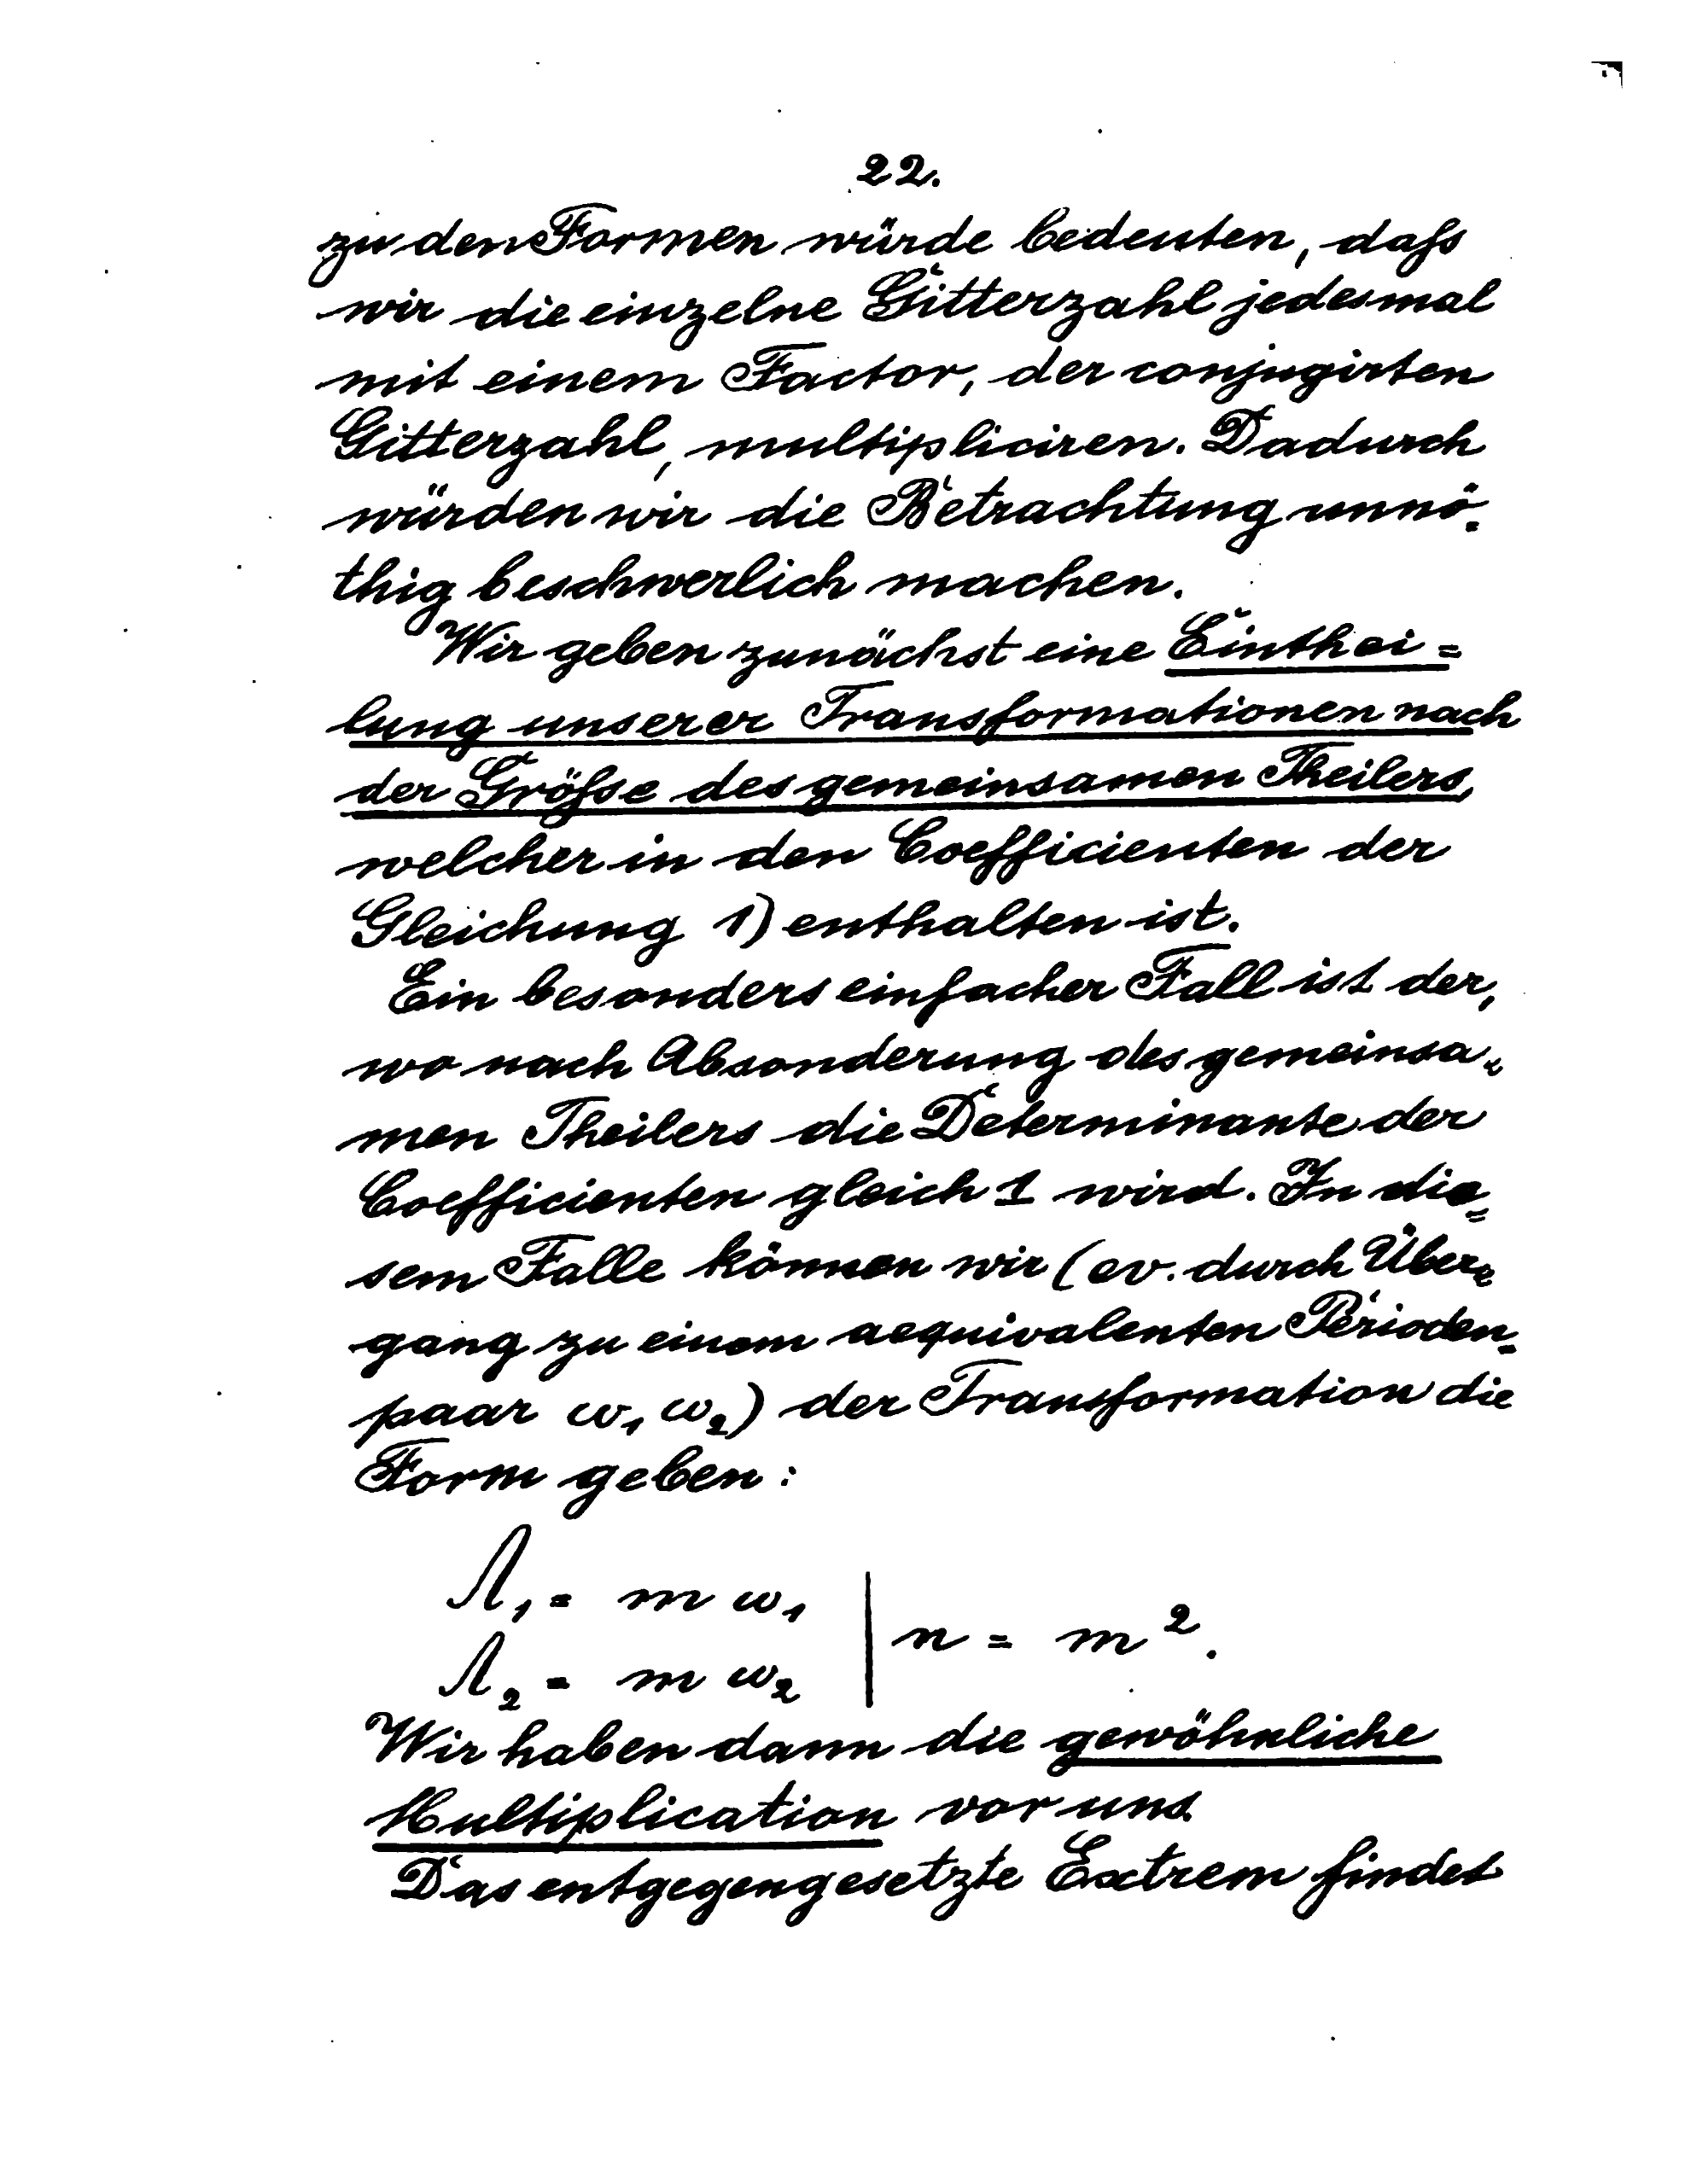 22.
zu den Formen würde bedeuten, daſs
wir die einzelne Gitterzahl jedesmal
mit einem Factor, der conjugirten
Gitterzahl, multipliciren. Dadurch
würden wir die Betrachtung unnö-
thig beschwerlich machen.
Wir geben zunächst eine Einthei=
lung unserer Transformationen nach
der Gröſse des gemeinsamen Theilers,
welcher in den Coefficienten der
Gleichung 1) enthalten ist.
Ein besonders einfacher Fall ist der,
wo nach Absonderung des gemeinsa-
men Theilers die Determinante der
Coefficienten gleich 1 wird. In die=
sem Falle können wir (ev. durch Über=
gang zu einem aequivalenten Perioden-
paar ω₁ ω₂) der Transformation die
Form geben:
Λ₁ = m ω₁
Λ₂ = m ω₂ | n = m².
Wir haben dann die gewöhnliche
Multiplication vor uns.
Das entgegengesetzte Extrem findet